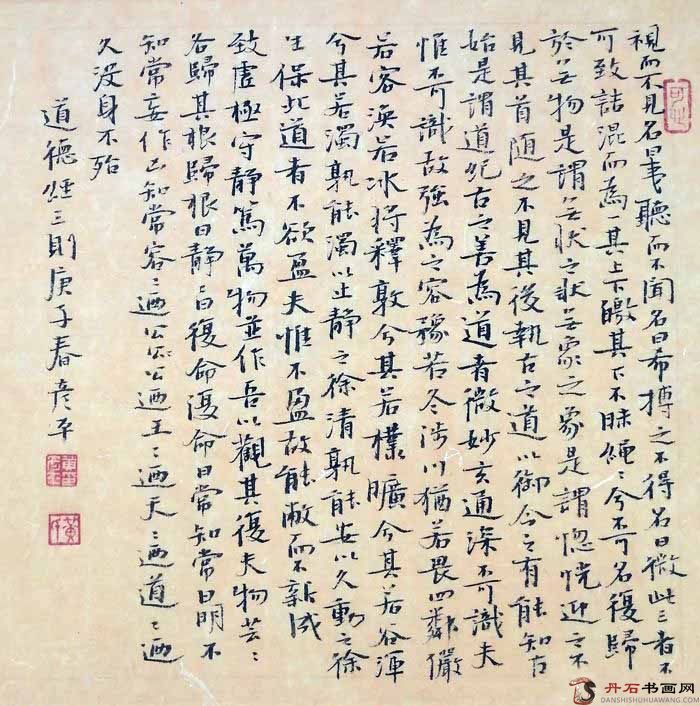 視而不見名曰夷聽而不聞名曰希搏之不得名曰微此三者不
可致詰混而為一其上下皦其下不昧繩〻兮不可名復歸
於无物是謂无狀之狀无象之象是謂惚恍迎之不
見其首隨之不見其後執古之道以御今之有能知古
始是謂道紀古之善為道者微妙玄通深不可識夫
惟不可識故強為之容豫若冬涉川猶若畏四鄰儼
若容渙若冰將釋敦兮其若樸曠兮其若谷渾
兮其若濁孰能濁以止靜之徐清孰能安以久動之徐
生保此道者不欲盈夫惟不盈故能敝而不新成
致虛極守靜篤萬物並作吾以觀其復夫物芸〻
各歸其根歸根曰靜〻曰復命復命曰常知常曰明不
知常妄作凶知常容〻迺公公迺王〻迺天〻迺道〻迺
久沒身不殆
道德經三則庚子春彥平
丹石书画网
DANSHISHUHUAWANG.COM